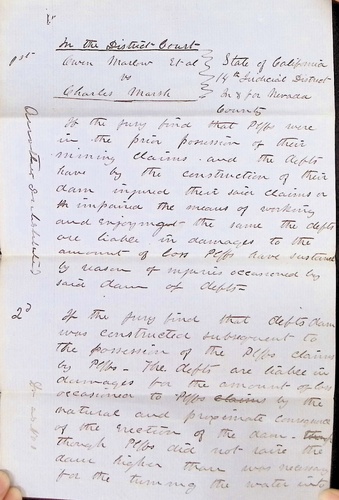 In the District Court
Owen Marlow Et al
vs
Charles Marsh
State of California
14th Judicial District
In & for Nevada
County
1st
If the jury find that Plffs were
in the prior possession of their
mining claims and the defts
have by the construction of their
dam injured their said claims or
impaired the means of working
and enjoyment the same the defts
are liable in damages to the
amount of loss Plffs have sustained
by reason of injuries occasioned by
said dam of defts-
2d
If the jury find that defts dam
was constructed subsequent to
the possession of the Plffs claims
by Plffs - the defts are liable in
damages for the amount of loss
occasioned to Plffs claim by the
natural and proximate consequence
of the Erection of the dam - though
though Plffs did not raise the
dam higher than was necessary
for the turning the water into